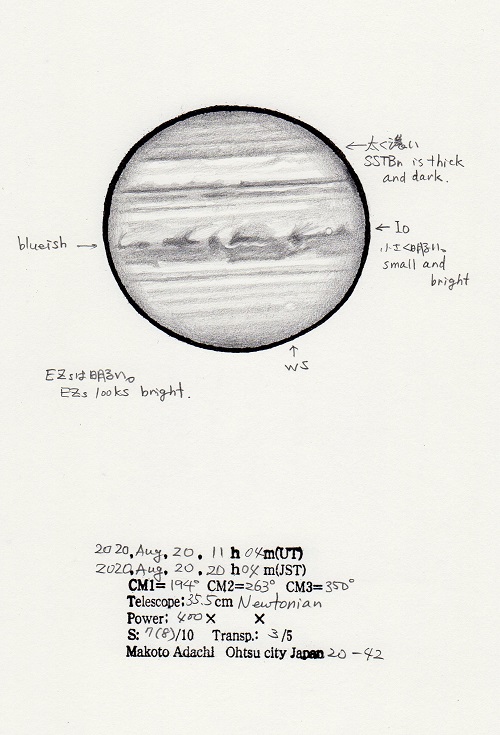 ←太く濃い
SSTBn is thick
and dark.
← Io
小さく明るい。
small and
bright
blueish →
↑
WS
EZsは明るい。
EZs looks bright.
2020, Aug, 20, 11 h 04m(UT)
2020, Aug, 20, 20 h 04 m(JST)
CM1= 194° CM2=263° CM3= 350°
Telescope: 35.5cm Newtonian
Power: 400× ×
S: 7(8)/10 Transp.: 3/5
Makoto Adachi Ohtsu city Japan 20-42